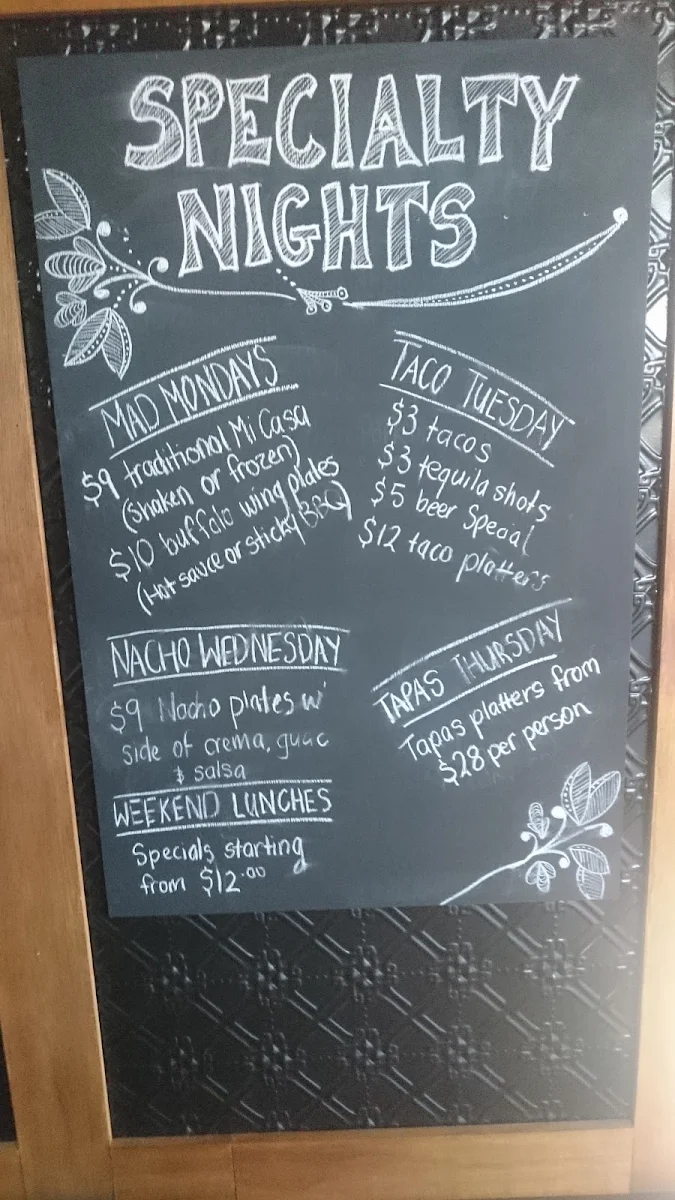 SPECIALTY
NIGHTS
MAD MONDAYS
$9 traditional Mi Casa
(shaken or frozen)
$10 buffalo wing plates
(Hot sauce or sticky BBQ)
TACO TUESDAY
$3 tacos
$3 tequila shots
$5 beer Special
$12 taco platters
NACHO WEDNESDAY
$9 Nacho plates w/
side of crema, guac
& salsa
TAPAS THURSDAY
Tapas platters from
$28 per person
WEEKEND LUNCHES
Specials starting
from $12.00